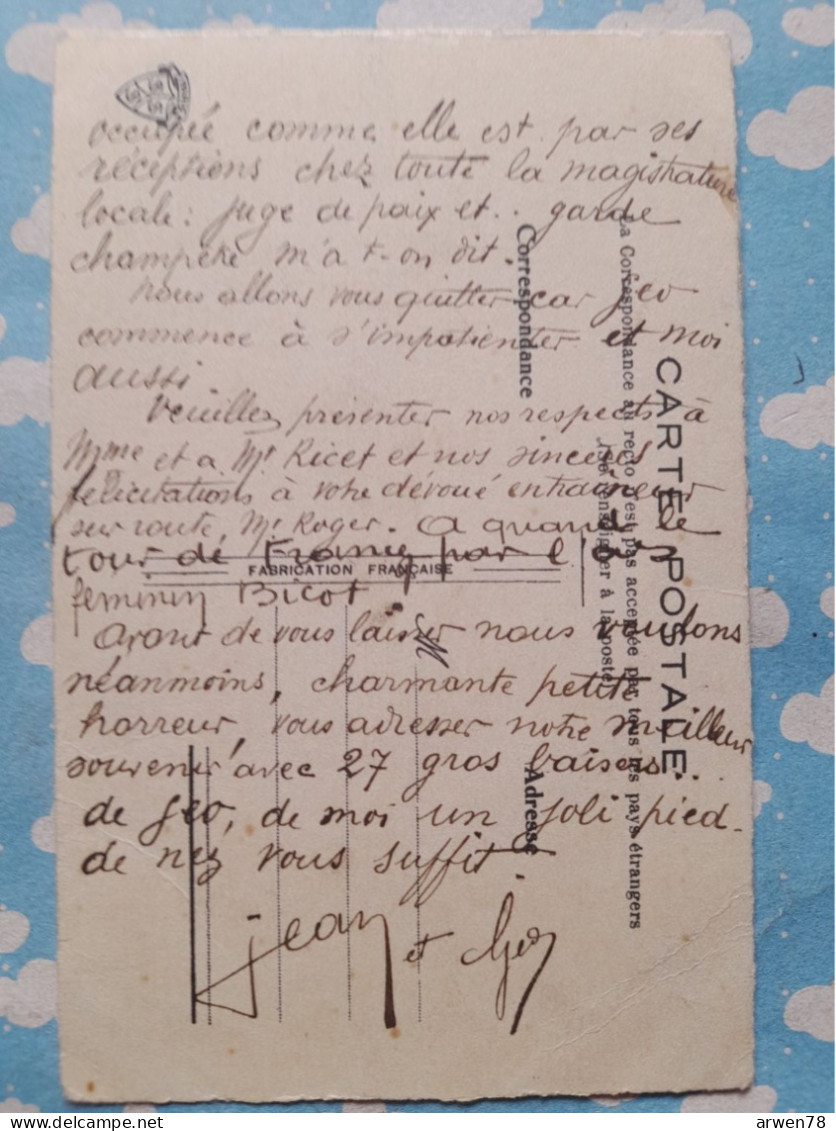 occupée comme elle est par ses
réceptions chez toute la magistrature
locale : juge de paix et .. garde
champêtre m'a t-on dit.
Nous allons vous quitter car Géo
commence à s'impatienter et moi
aussi
Veuillez présenter nos respects à
Mme et a Mr Ricet et nos sincères
félicitations à votre dévoué entraineur
sur route, Mr Roger. A quand le
tour de France par l'
feminin Bicot
Avant de vous laisser nous voulons
néanmoins, charmante petite
horreur, vous adresser notre meilleur
souvenir avec 27 gros baisers
de Géo, de moi un joli pied-
de nez vous suffit.
Jean et Géo
CARTE POSTALE
La Correspondance au recto n'est pas acceptée par tous les pays étrangers
(Se renseigner à la poste)
Correspondance
Adresse
FABRICATION FRANÇAISE
arwen78